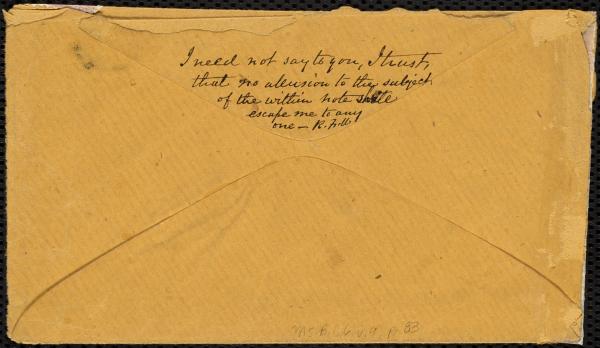 I need not say to you, I trust,
that no alension to the subject
of the within note shall
escape me to any
one — R. F. W.
Ms. B. 1.6 v. 9, p. 83